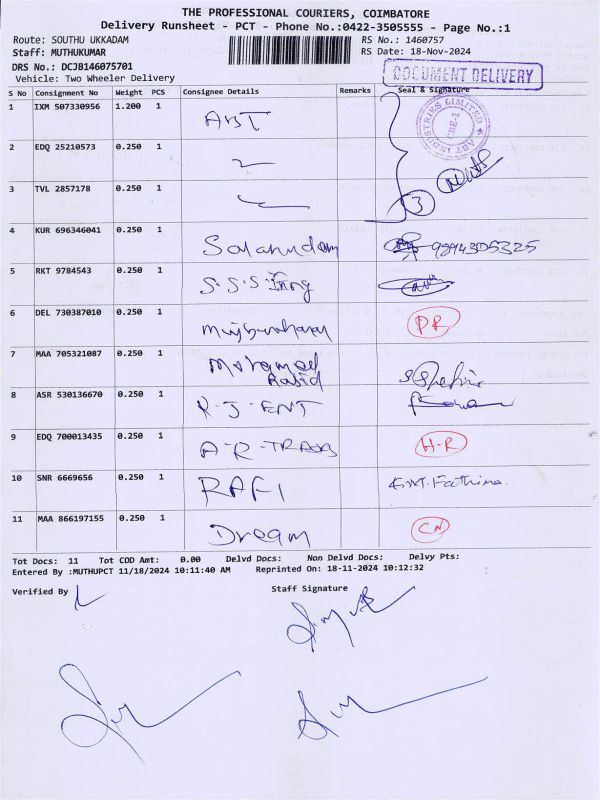 THE PROFESSIONAL COURIERS, COIMBATORE
Delivery Runsheet - PCT - Phone No.:0422-3505555 - Page No.:1
Route: SOUTHU UKKADAM RS No.: 1460757
Staff: MUTHUKUMAR RS Date: 18-Nov-2024
DRS No.: DCJB146075701
Vehicle: Two Wheeler Delivery
DOCUMENT DELIVERY
S No Consignment No Weight PCS Consignee Details Remarks Seal & Signature
1 IXM 507330956 1.200 1 ABT
ABT INDUSTRIES LIMITED CBE-1
2 EDQ 25210573 0.250 1
3 TVL 2857178 0.250 1 3
4 KUR 696346041 0.250 1 9894305325
5 RKT 9784543 0.250 1 S.S.S
6 DEL 730387010 0.250 1 PR
7 MAA 705321087 0.250 1 Mohamed
8 ASR 530136670 0.250 1 ENT
9 EDQ 700013435 0.250 1 A-R- H-R
10 SNR 6669656 0.250 1 RAFI Fathima
11 MAA 866197155 0.250 1 Dream CN
Tot Docs: 11 Tot COD Amt: 0.00 Delvd Docs: Non Delvd Docs: Delvy Pts:
Entered By :MUTHUPCT 11/18/2024 10:11:40 AM Reprinted On: 18-11-2024 10:12:32
Verified By Staff Signature